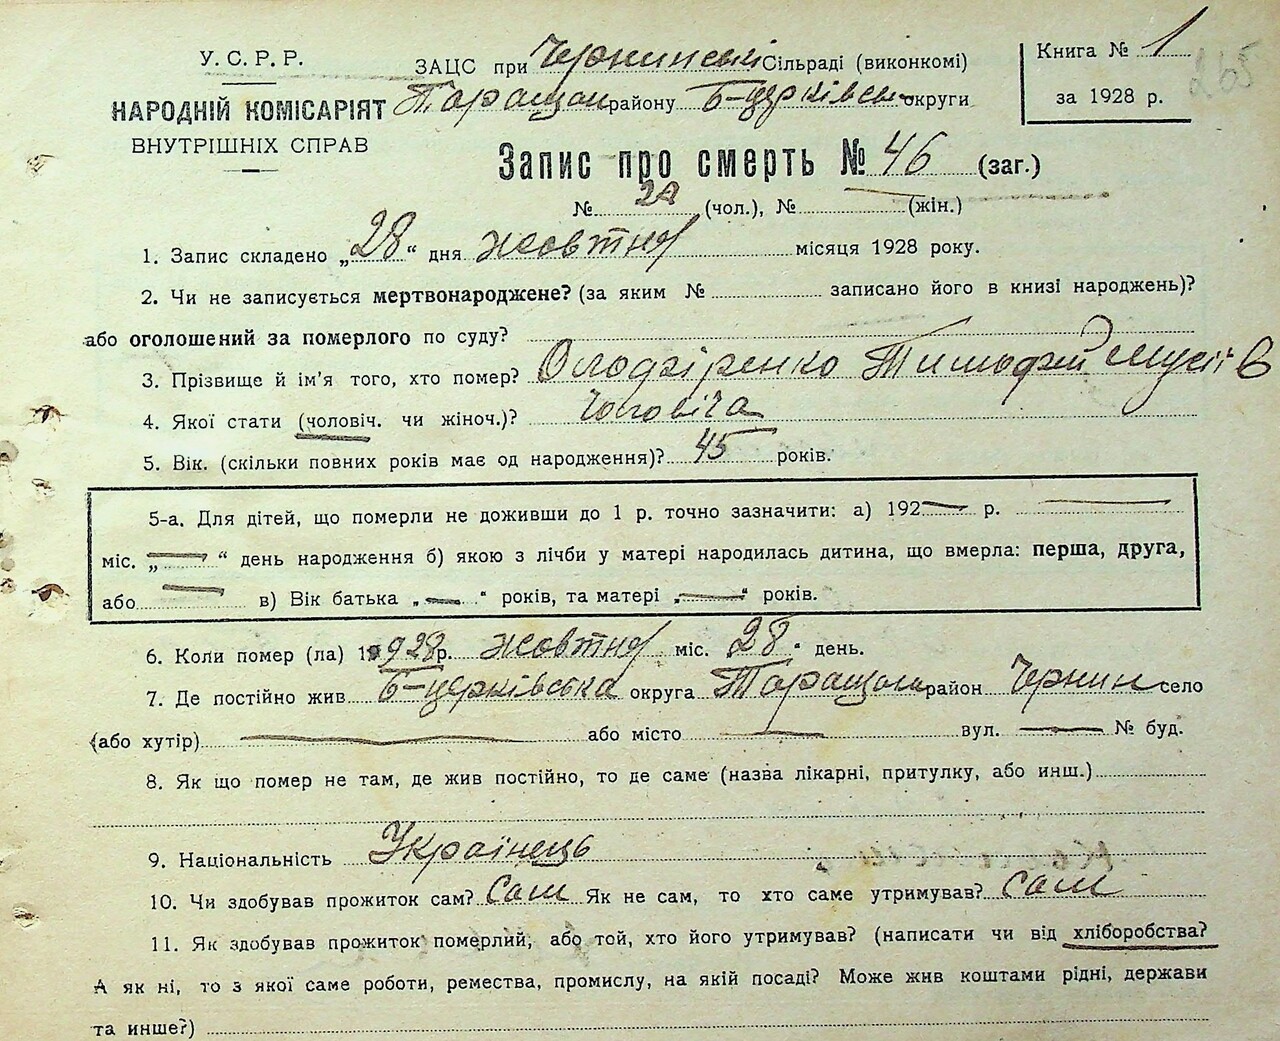 У. С. Р. Р.
НАРОДНІЙ КОМІСАРІЯТ
ВНУТРІШНІХ СПРАВ
ЗАЦС при Чернинській Сільраді (виконкомі)
Таращан району Б-церківськ округи
Книга № 1
за 1928 р.
265
Запис про смерть № 46 (заг.)
№ (чол.), № (жін.)
1. Запис складено „28“ дня жовтня місяця 1928 року.
2. Чи не записується мертвонароджене? (за яким № записано його в книзі народжень)?
або оголошений за померлого по суду?
3. Прізвище й ім'я того, хто помер? Олодзіренко Тимофій Мусіїв
4. Якої стати (чоловіч. чи жіноч.)? Чоловіча
5. Вік. (скільки повних років має од народження)? 45 років.
5-а. Для дітей, що померли не доживши до 1 р. точно зазначити: а) 192— р. —
міс. „—“ день народження б) якою з лічби у матері народилась дитина, що вмерла: перша, друга,
або — в) Вік батька „—“ років, та матері „—“ років.
6. Коли помер (ла) 1928 р. жовтня міс. 28 “ день.
7. Де постійно жив Б-церківська округа Таращан район Чернин село
(або хутір) — або місто — вул. — № буд.
8. Як що помер не там, де жив постійно, то де саме (назва лікарні, притулку, або инш.)
9. Національність Українець
10. Чи здобував прожиток сам? Сам Як не сам, то хто саме утримував? сам
11. Як здобував прожиток померлий, або той, хто його утримував? (написати чи від хліборобства?
А як ні, то з якої саме роботи, ремества, промислу, на якій посаді? Може жив коштами рідні, держави
та инше?)